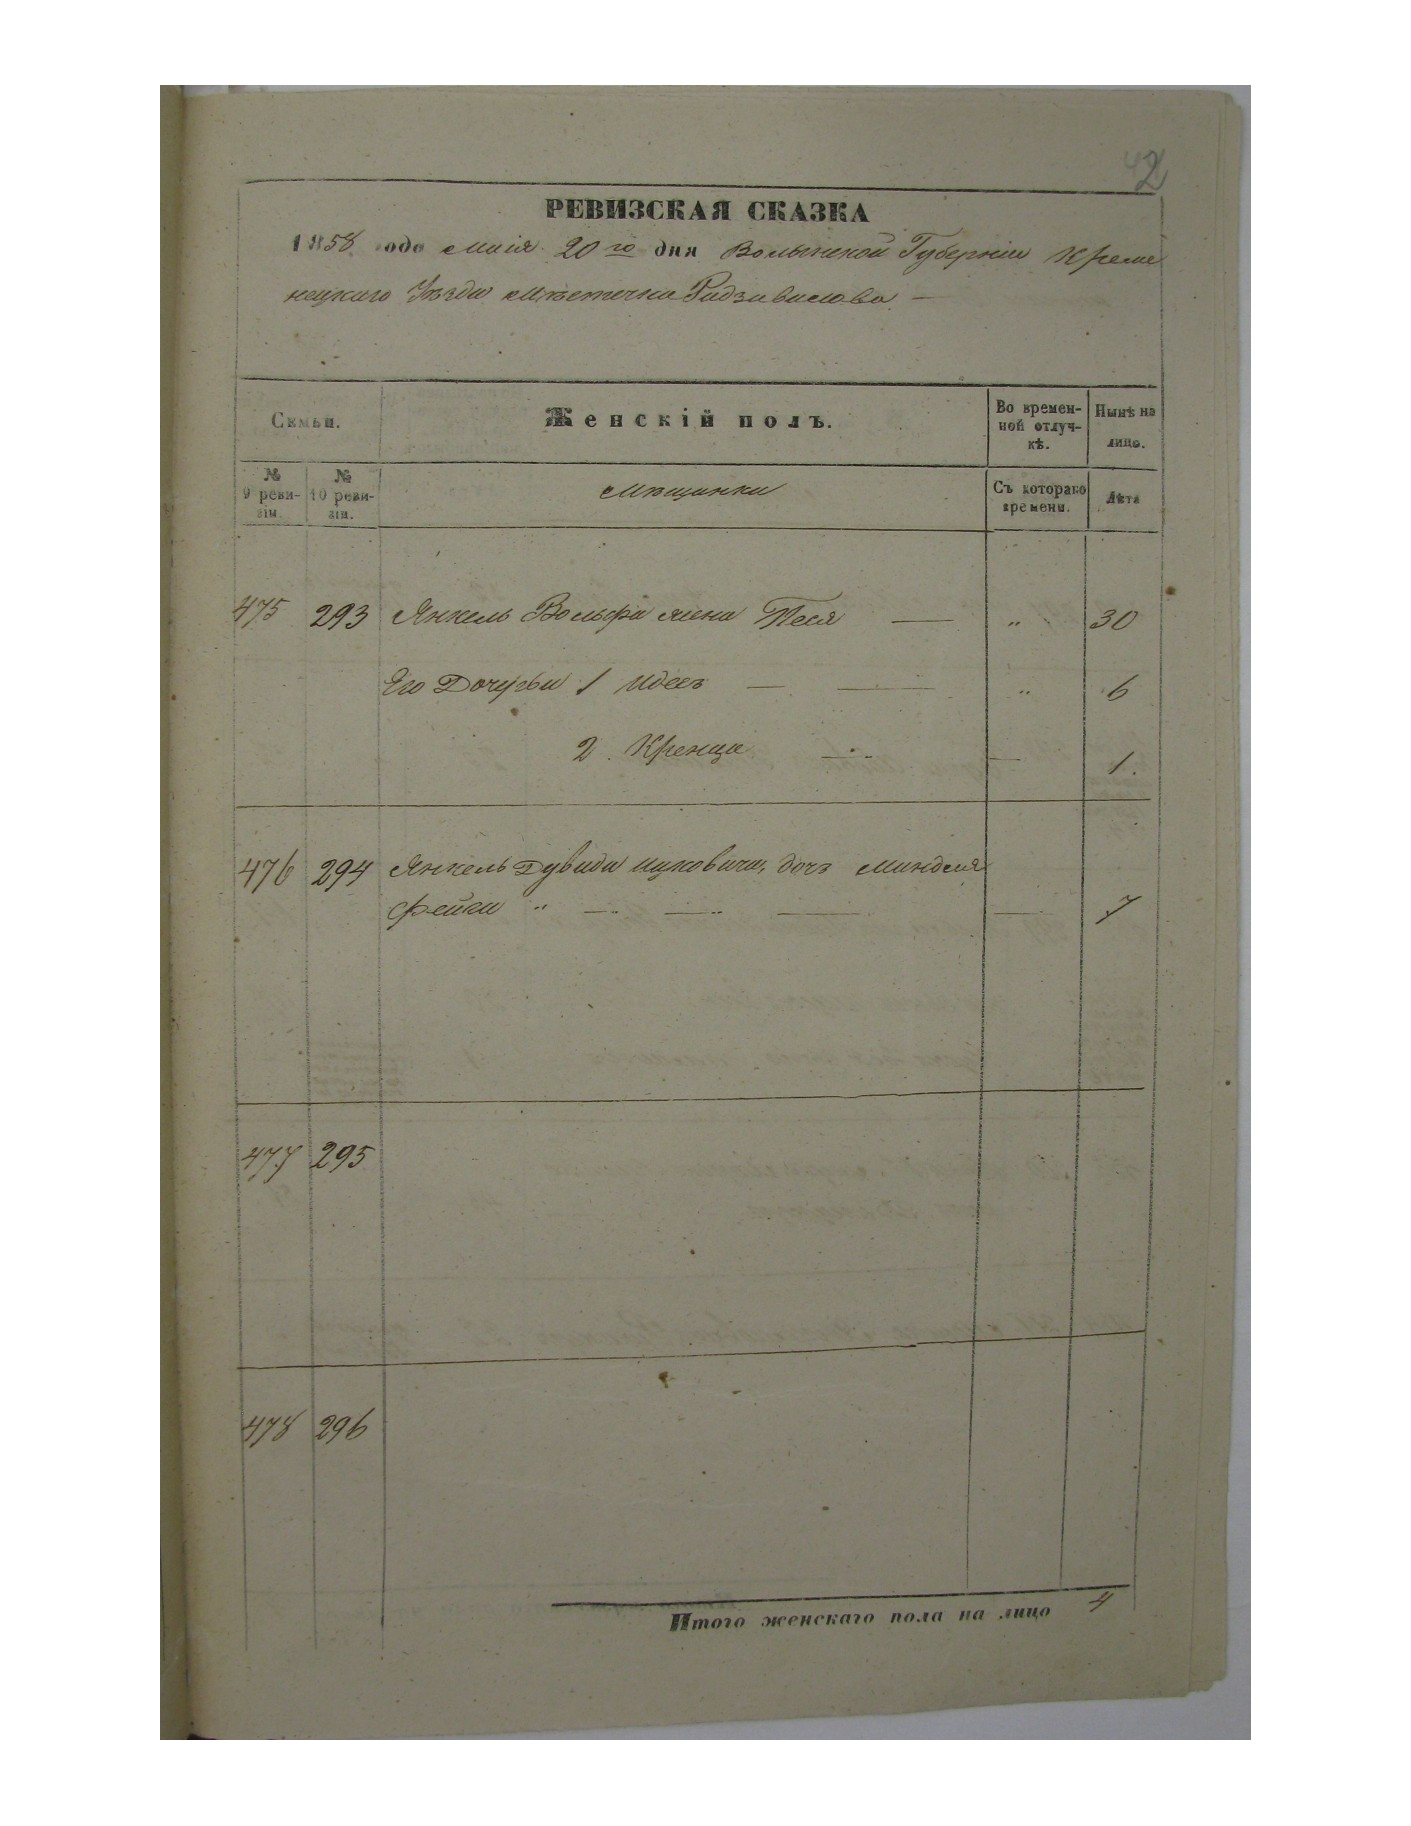 42
РЕВИЗСКАЯ СКАЗКА
1858 года маія 20го дня Волынской Губерніи Креме
нецкаго Уѣзда мѣстечка Радзивилова —
Семьи.
Женскій полъ.
Во времен-
ной отлуч-
кѣ.
Нынѣ на
лицо.
№
9 реви-
зіи.
№
10 реви-
зіи.
Мѣщанки
Съ котораго
времени.
Лѣта
475 293 Янкель Вольфа жена Песя — " 30
Его Дочерьи 1 Идесъ — — " 6
2. Кренца — — 1.
476 294 Янкель Дувида Ицковича, дочь Миндля
Фейга " — — — — 7
477 295
478 296
Итого женскаго пола на лицо 4